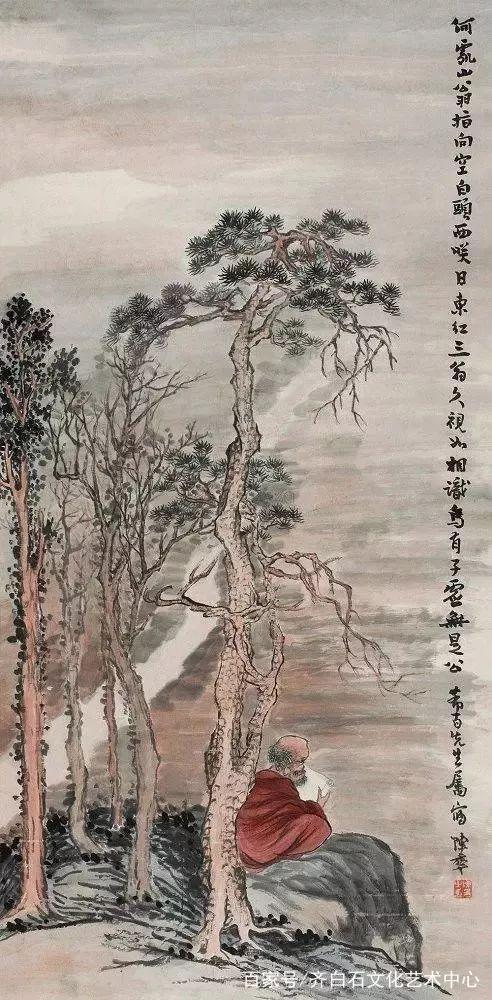 何處山翁指向空白頭西咲日東紅三翁久視如相識烏有子虛無是公 希古先生屬 陳半
百家号/齐白石文化艺术中心